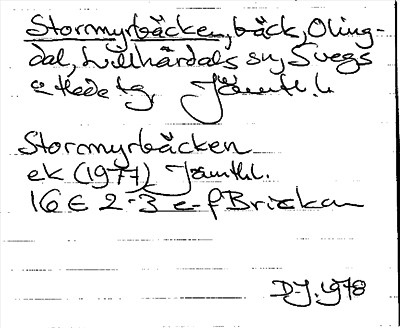 Stormyrbäcken, bäck, Oling-
dal, Lillhärdals sn, Svegs
o Hede tg, Jämtl. l.
Stormyrbäcken
ek (1977) Jämtl.
16 E 2-3 e-f Brickan
D-J. 1978